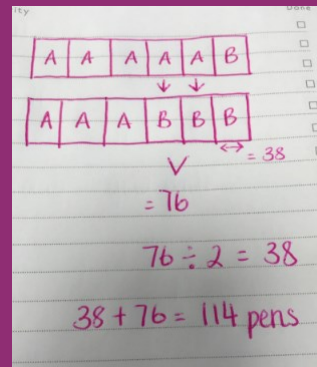 ity
Done
A A A A A B
↓ ↓
A A A B B B
↔ = 38
V
= 76
76 ÷ 2 = 38
38 + 76 = 114 pens